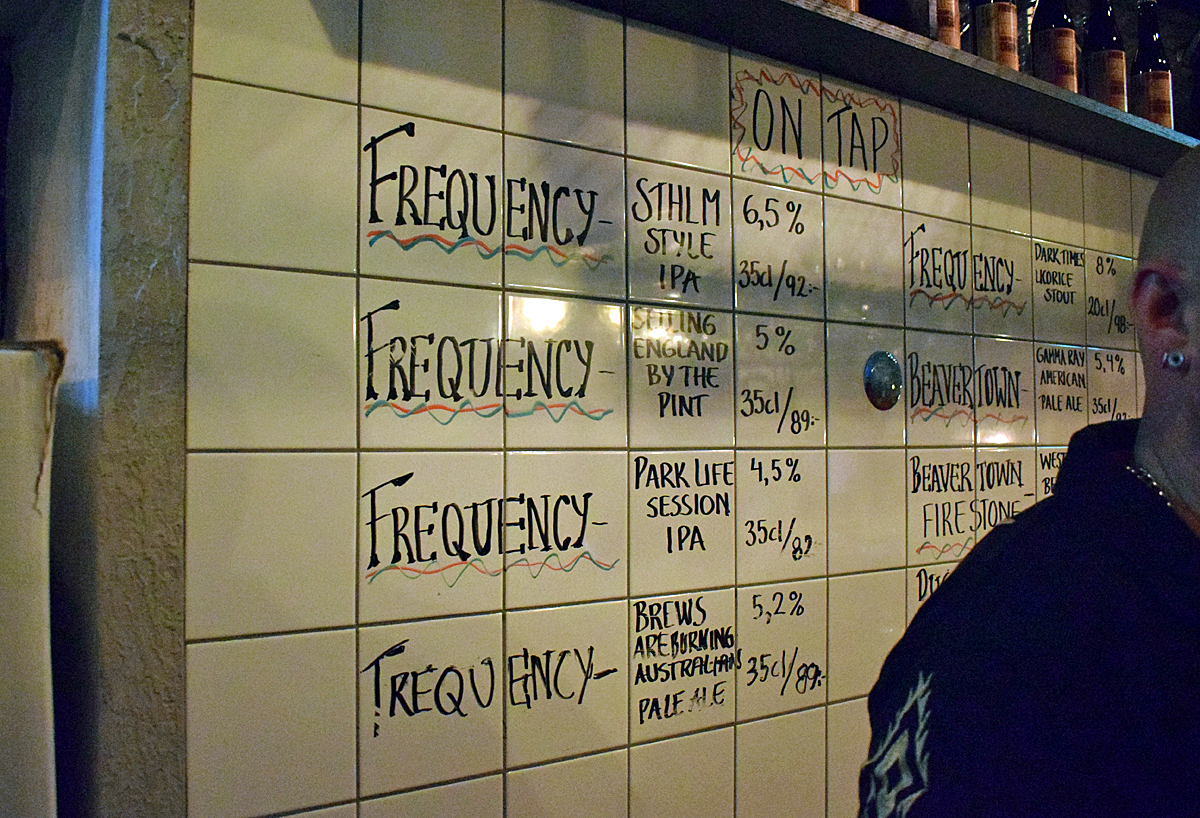 ON TAP
FREQUENCY-
STHLM
STYLE
IPA
6,5%
35cl/92:-
FREQUENCY-
SELLING
ENGLAND
BY THE
PINT
5%
35cl/89:-
FREQUENCY-
PARK LIFE
SESSION
IPA
4,5%
35cl/82
FREQUENCY-
BREWS
ARE BURNING
AUSTRALIANS
PALE ALE
5,2%
35cl/89:-
FREQUENCY-
DARK TIMES
LICORICE
STOUT
8%
20cl/98:-
BEAVERTOWN-
GAMMA RAY
AMERICAN
PALE ALE
5,4%
35cl/92:
BEAVERTOWN-
FIRESTONE